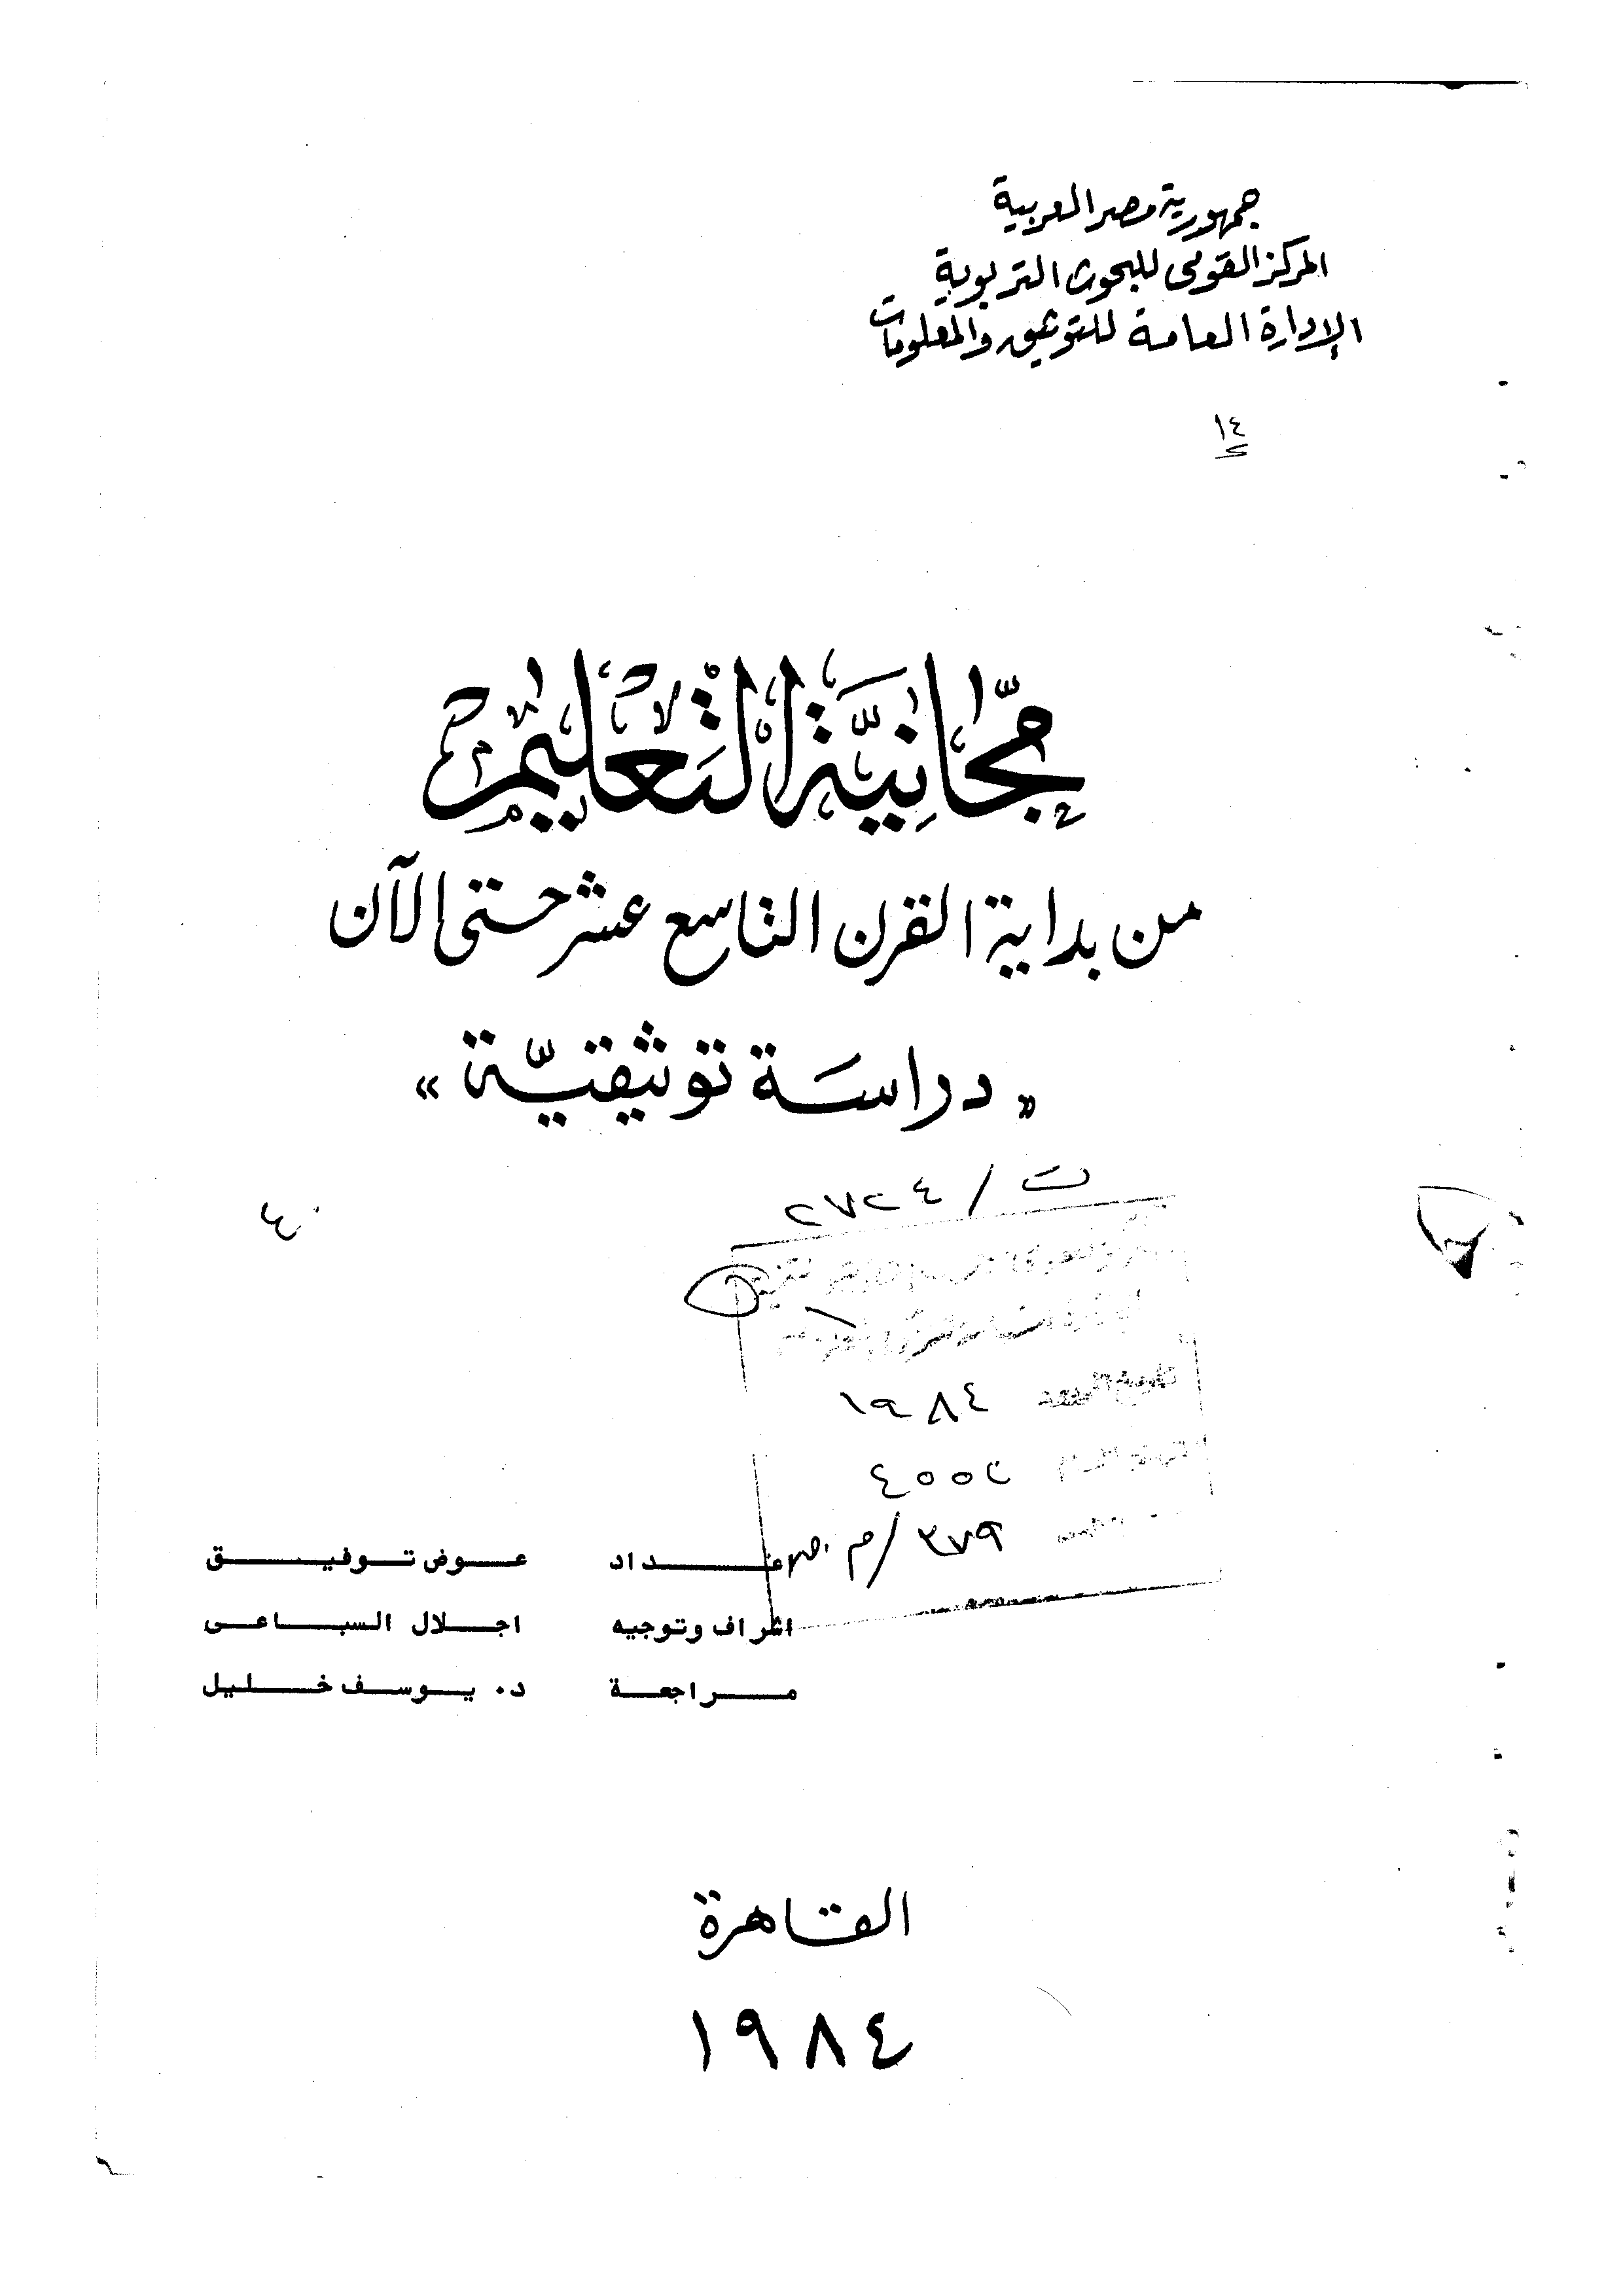 جمهورية مصر العربية
المركز القومى للبحوث التربوية
الإدارة العامة للتوثيق والمعلومات
١٤
مجَّانِيَّة التَعليم
من بداية القرن التاسع عشر حتى الآن
« دراسَة توثيقيّة »
ت / ٢٧٢٤
٤٠
١٩٨٤
٣٧٩ / م
اعداد عوض توفيق
اشراف وتوجيه اجلال السباعى
مراجعة د. يوسف خليل
القاهرة
١٩٨٤